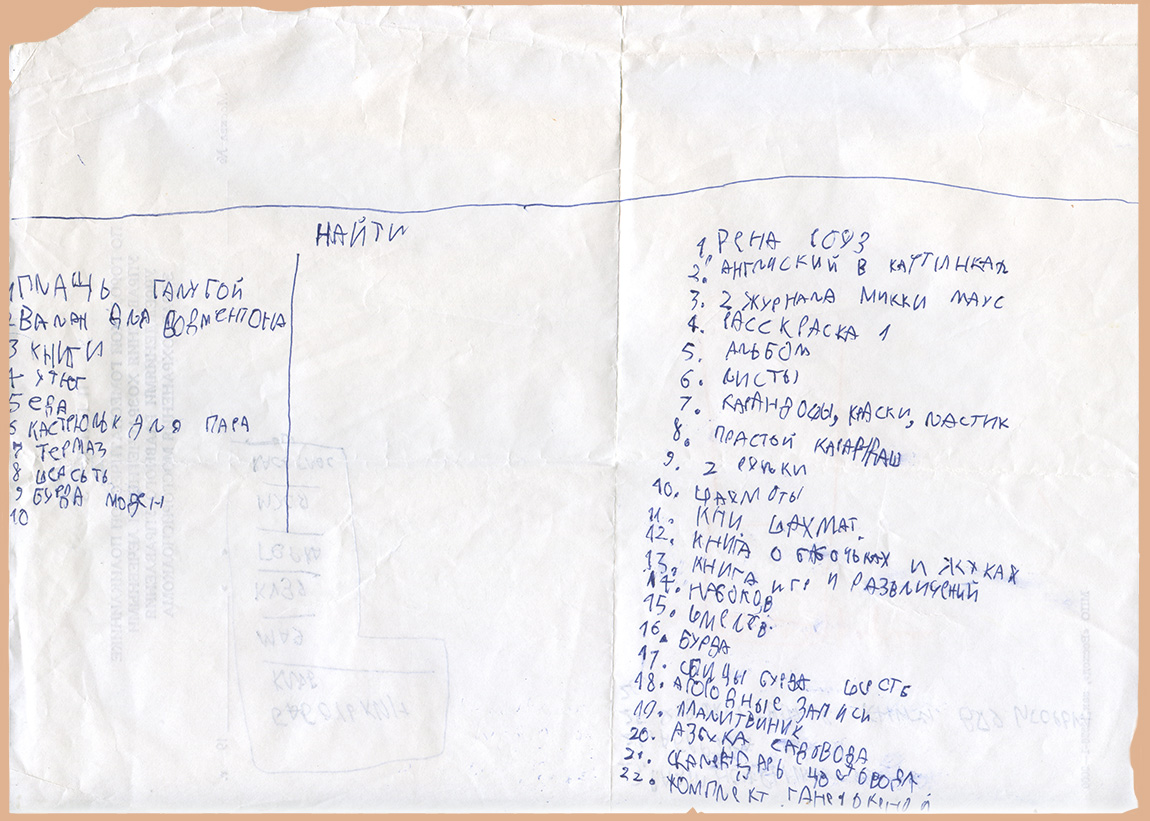 НАЙТИ
1 ПЛАЩЬ ГАЛУБОЙ
2 ВАЛАН ДЛА БОДМЕНТОНА
3 КНИГИ
4 УТЮГ
5 ЕДА
6 КАСТРЮЛЬК ДЛЯ ПАРА
7 ТЕРМАЗ
8
9 БУРДА МОДЕН
10
1. РЕНА
2. АНГЛИСКИЙ В КАРТИНКАХ
3. 2 ЖУРНАЛА МИККИ МАУС
4. РАССКРАСКА 1
5. АЛЬБОМ
6. ЛИСТЫ
7. КАРАНДОШЫ, КРАСКИ, ЛАСТИК
8. ПРАСТОЙ КАРАРНАШ
9. 2
10. ШАХМОТЫ
11. КНИ. ШАХМАТ.
12. КНИГА О БАБОЧЬКАХ И ЖУКАХ
13. КНИГА ИГР И РАЗВЛИЧЕНИЙ
14. НАБОКОВ
15. ШМЕЛЕВ.
16. БУРДА
17. БУРДА
18. ЗАПИСИ
19. МАЛИТВИНИК
20. АЗБУКА САДОВОДА
21.
22. КОМПЛЕКТ